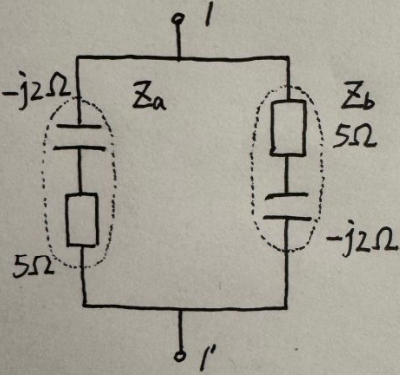 1
-j2Ω
Za
Zb
5Ω
5Ω
-j2Ω
1'